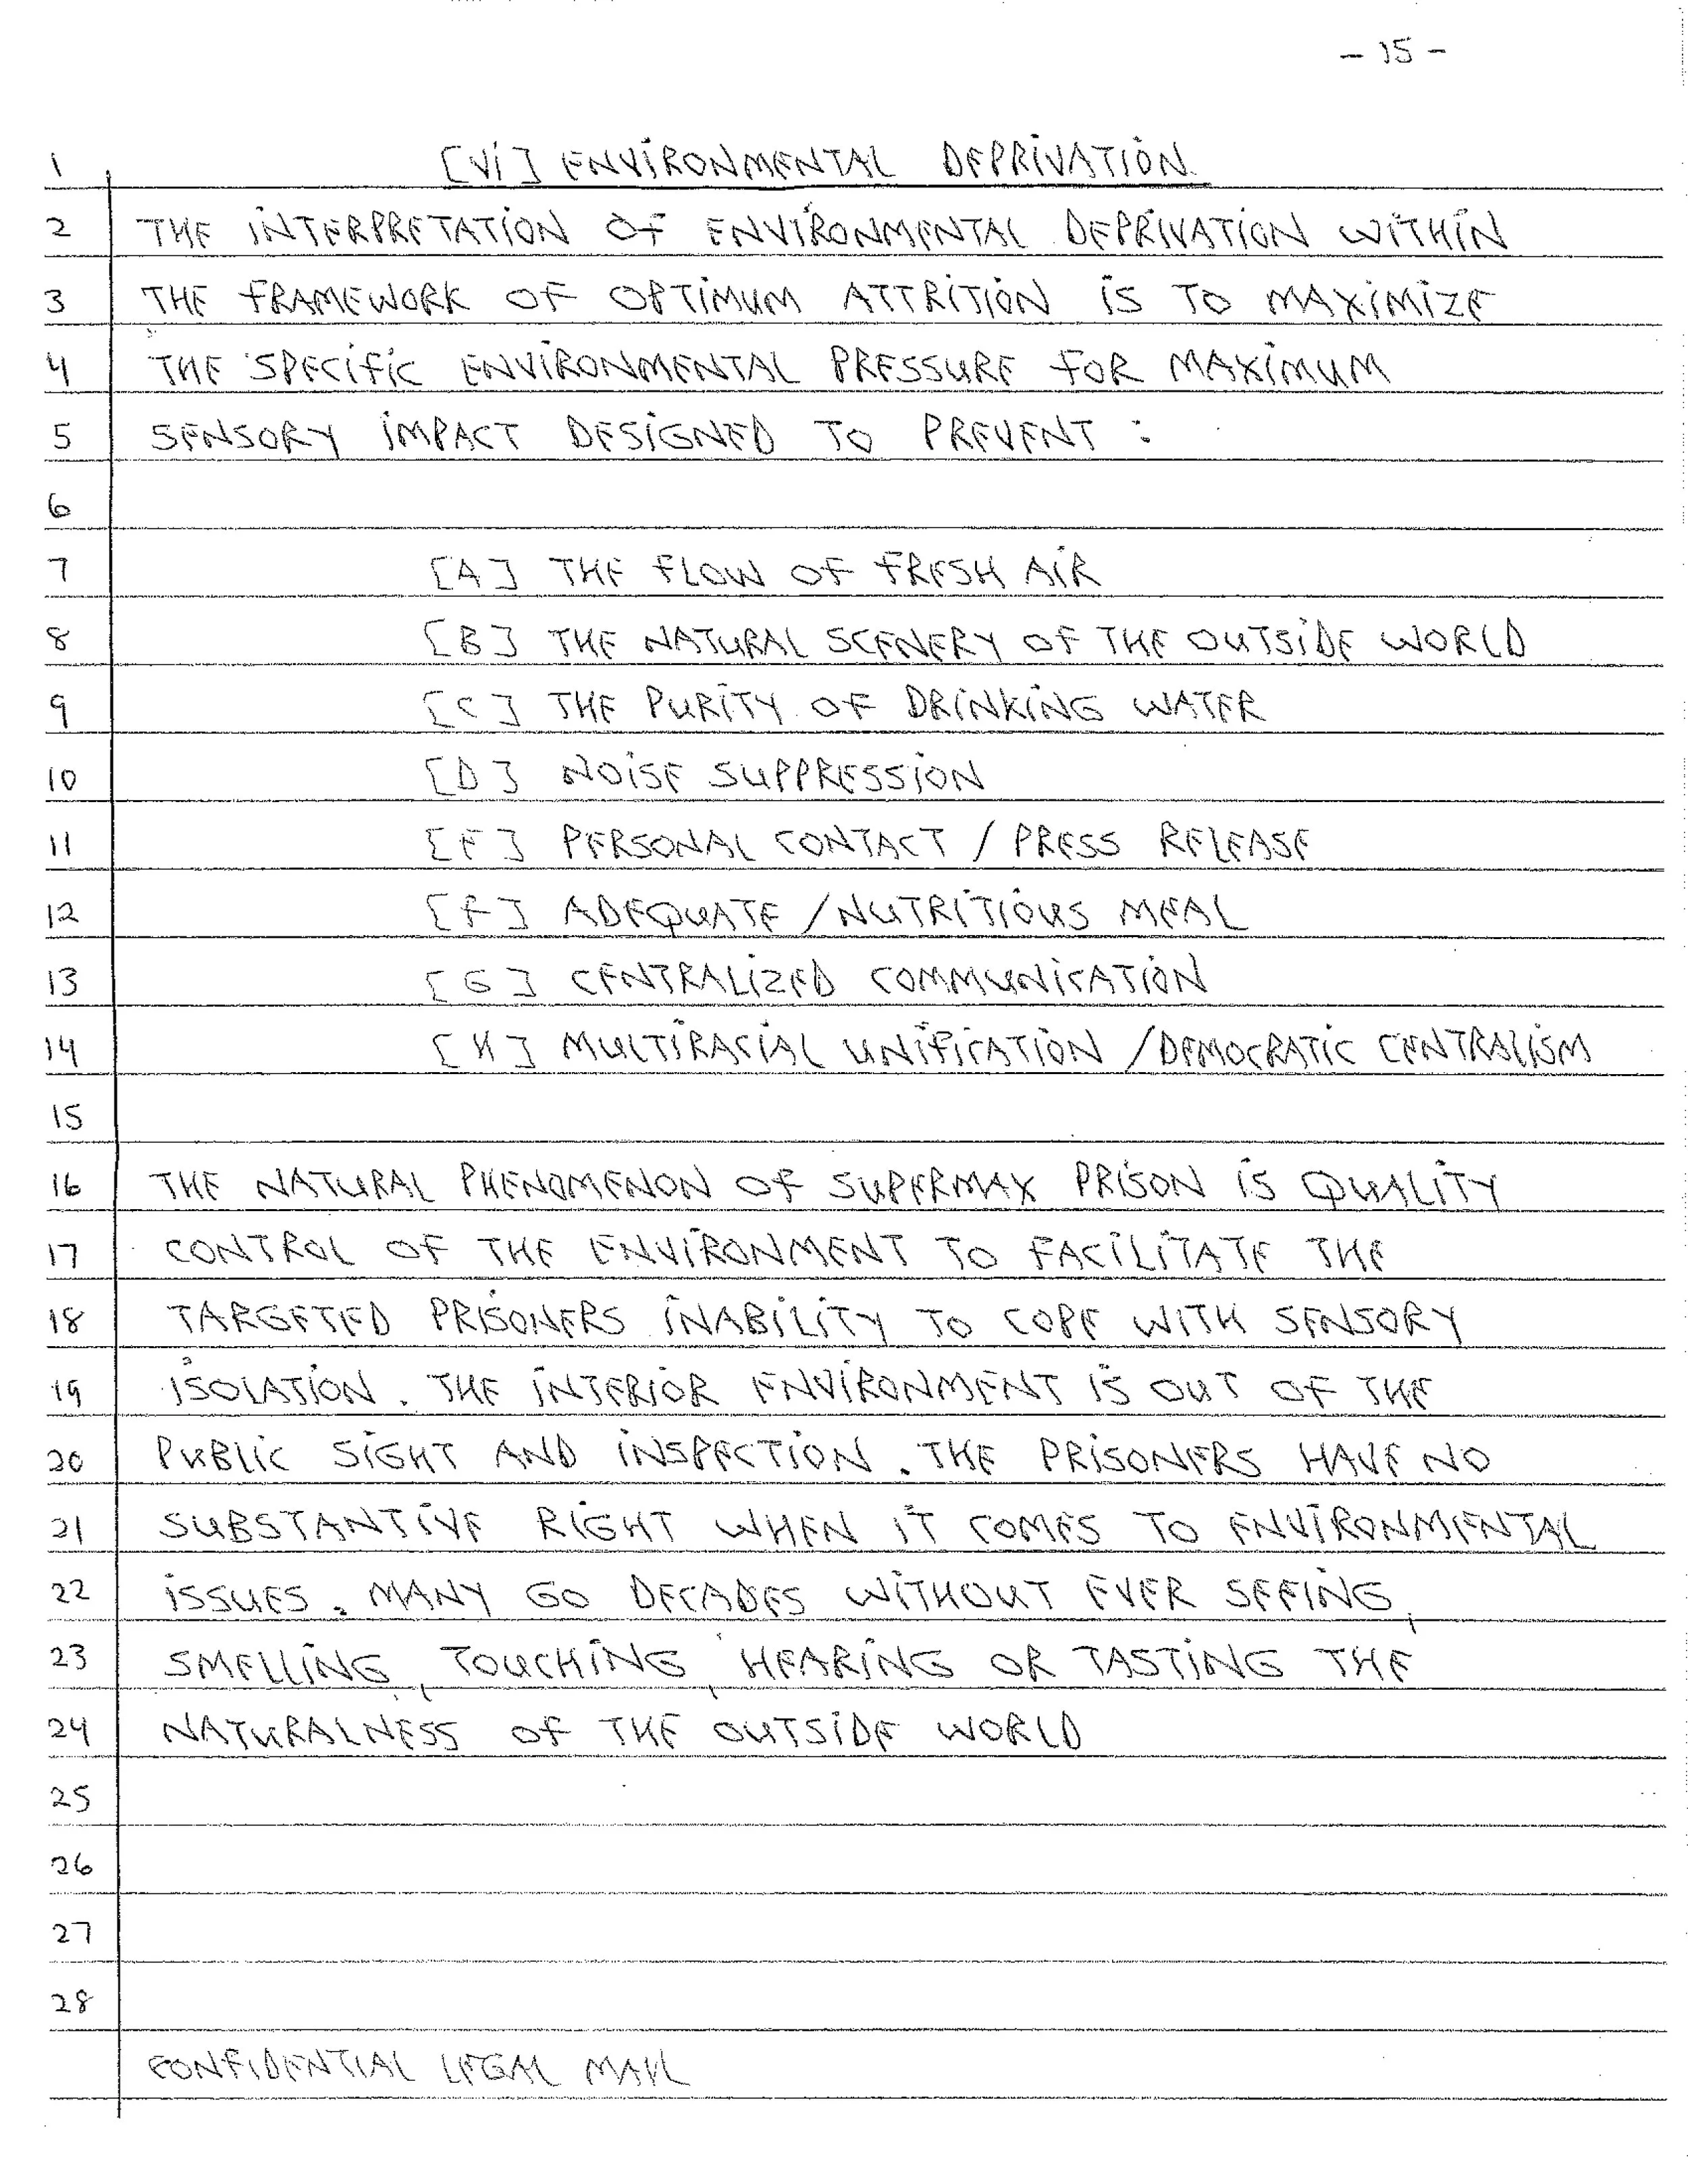 - 15 -
1 [Vi] ENViRONMENTAL DEPRiVATiON
2 THE iNTERPRETATiON OF ENViRONMENTAL DEPRiVATiON WiTHiN
3 THE FRAMEWORK OF OPTiMUM ATTRiTiON iS TO MAXiMiZE
4 THE SPECiFiC ENViRONMENTAL PRESSURE FOR MAXiMUM
5 SENSORY iMPACT DESiGNED TO PREVENT :
6
7 [A] THE FLOW OF FRESH AiR
8 [B] THE NATURAL SCENERY OF THE OUTSiDE WORLD
9 [C] THE PURiTY OF DRiNKiNG WATER
10 [D] NOiSE SUPPRESSiON
11 [E] PERSONAL CONTACT / PRESS RELEASE
12 [F] ADEQUATE / NUTRiTiOUS MEAL
13 [G] CENTRALiZED COMMUNiCATiON
14 [H] MULTiRACiAL UNiFiCATiON / DEMOCRATiC CENTRALiSM
15
16 THE NATURAL PHENOMENON OF SUPERMAX PRiSON iS QUALiTY
17 CONTROL OF THE ENViRONMENT TO FACiLiTATE THE
18 TARGETED PRiSONERS iNABiLiTY TO COPE WiTH SENSORY
19 iSOLATiON. THE iNTERiOR ENViRONMENT iS OUT OF THE
20 PUBLiC SiGHT AND iNSPECTiON. THE PRiSONERS HAVE NO
21 SUBSTANTiVE RiGHT WHEN iT COMES TO ENViRONMENTAL
22 iSSUES. MANY GO DECADES WiTHOUT EVER SEEiNG,
23 SMELLiNG, TOUCHiNG, HEARiNG OR TASTiNG THE
24 NATURALNESS OF THE OUTSiDE WORLD
25
26
27
28
CONFiDENTiAL LEGAL MAiL